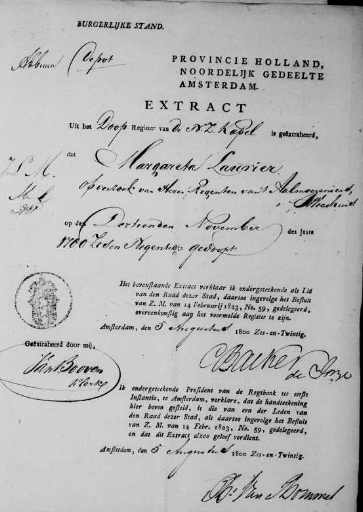 BURGERLIJKE STAND.
PROVINCIE HOLLAND,
NOORDELIJK GEDEELTE
AMSTERDAM.
EXTRACT
Uit het Doop Register van de N.Z. Kapel is geëxtraheerd,
dat Margareta Laurier
op verzoek van Heren Regenten van't Aalmoezeniers
Weeshuis
op den Dertienden November des Jaars
1700 Zes en Negentig gedoopt
Het bovenstaande Extract verklaar ik ondergeteekende als Lid
van den Raad dezer Stad, daartoe ingevolge het Besluit
van Z. M. van 14 Februarij 1823, No. 59, gedelegeerd,
overeenkomstig aan het voormelde Register te zijn.
Amsterdam, den 5 Augustus 1800 Zes-en-Twintig.
Geëxtraheerd door mij,
Backer
Ik ondergeteekende President van de Regtbank ter eerste
Instantie, te Amsterdam, verklare, dat de handteekening
hier boven gesteld, is die van een der Leden van
den Raad dezer Stad, als daartoe ingevolge het Besluit
van Z. M. van 14 Febr. 1823, No. 59, gedelegeerd,
en dat dit Extract alzoo geloof verdient.
Amsterdam, den 5 Augustus 1800 Zes-en-Twintig.
Van Bommel